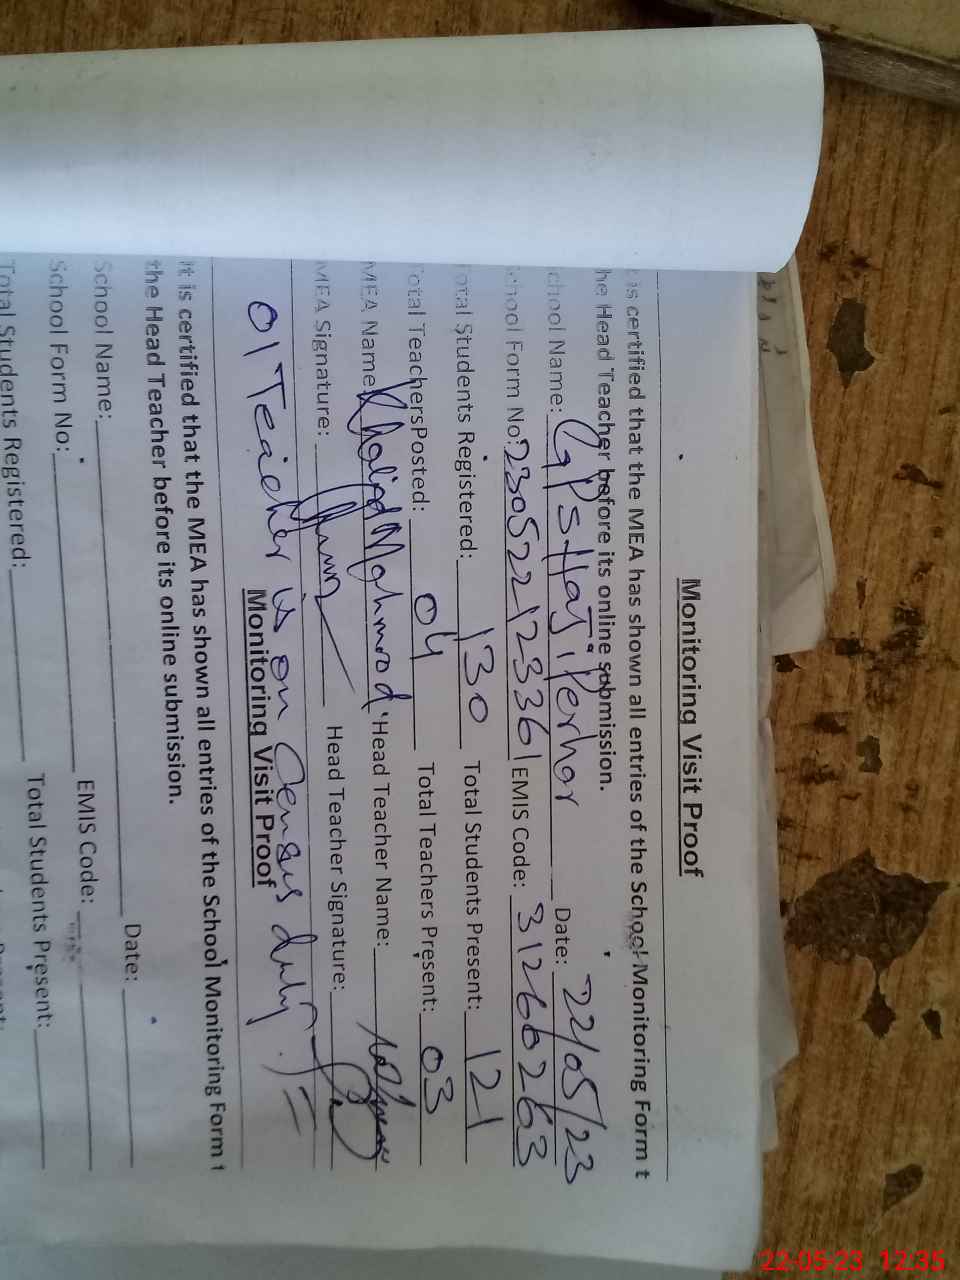 Monitoring Visit Proof
is certified that the MEA has shown all entries of the School Monitoring Form t
he Head Teacher before its online submission.
chool Name: GPS Haji Perhar Date: 22/05/23
chool Form No: 230522123361 EMIS Code: 31266263
otal Students Registered: 130 Total Students Present: 121
Total TeachersPosted: 04 Total Teachers Present: 03
MEA Name: Khalid Mahmood Head Teacher Name:
MEA Signature: Head Teacher Signature:
01 Teacher is on Census duty.
Monitoring Visit Proof
It is certified that the MEA has shown all entries of the School Monitoring Form t
the Head Teacher before its online submission.
School Name: Date:
School Form No: EMIS Code:
Total Students Registered: Total Students Present:
22-05-23 12:35